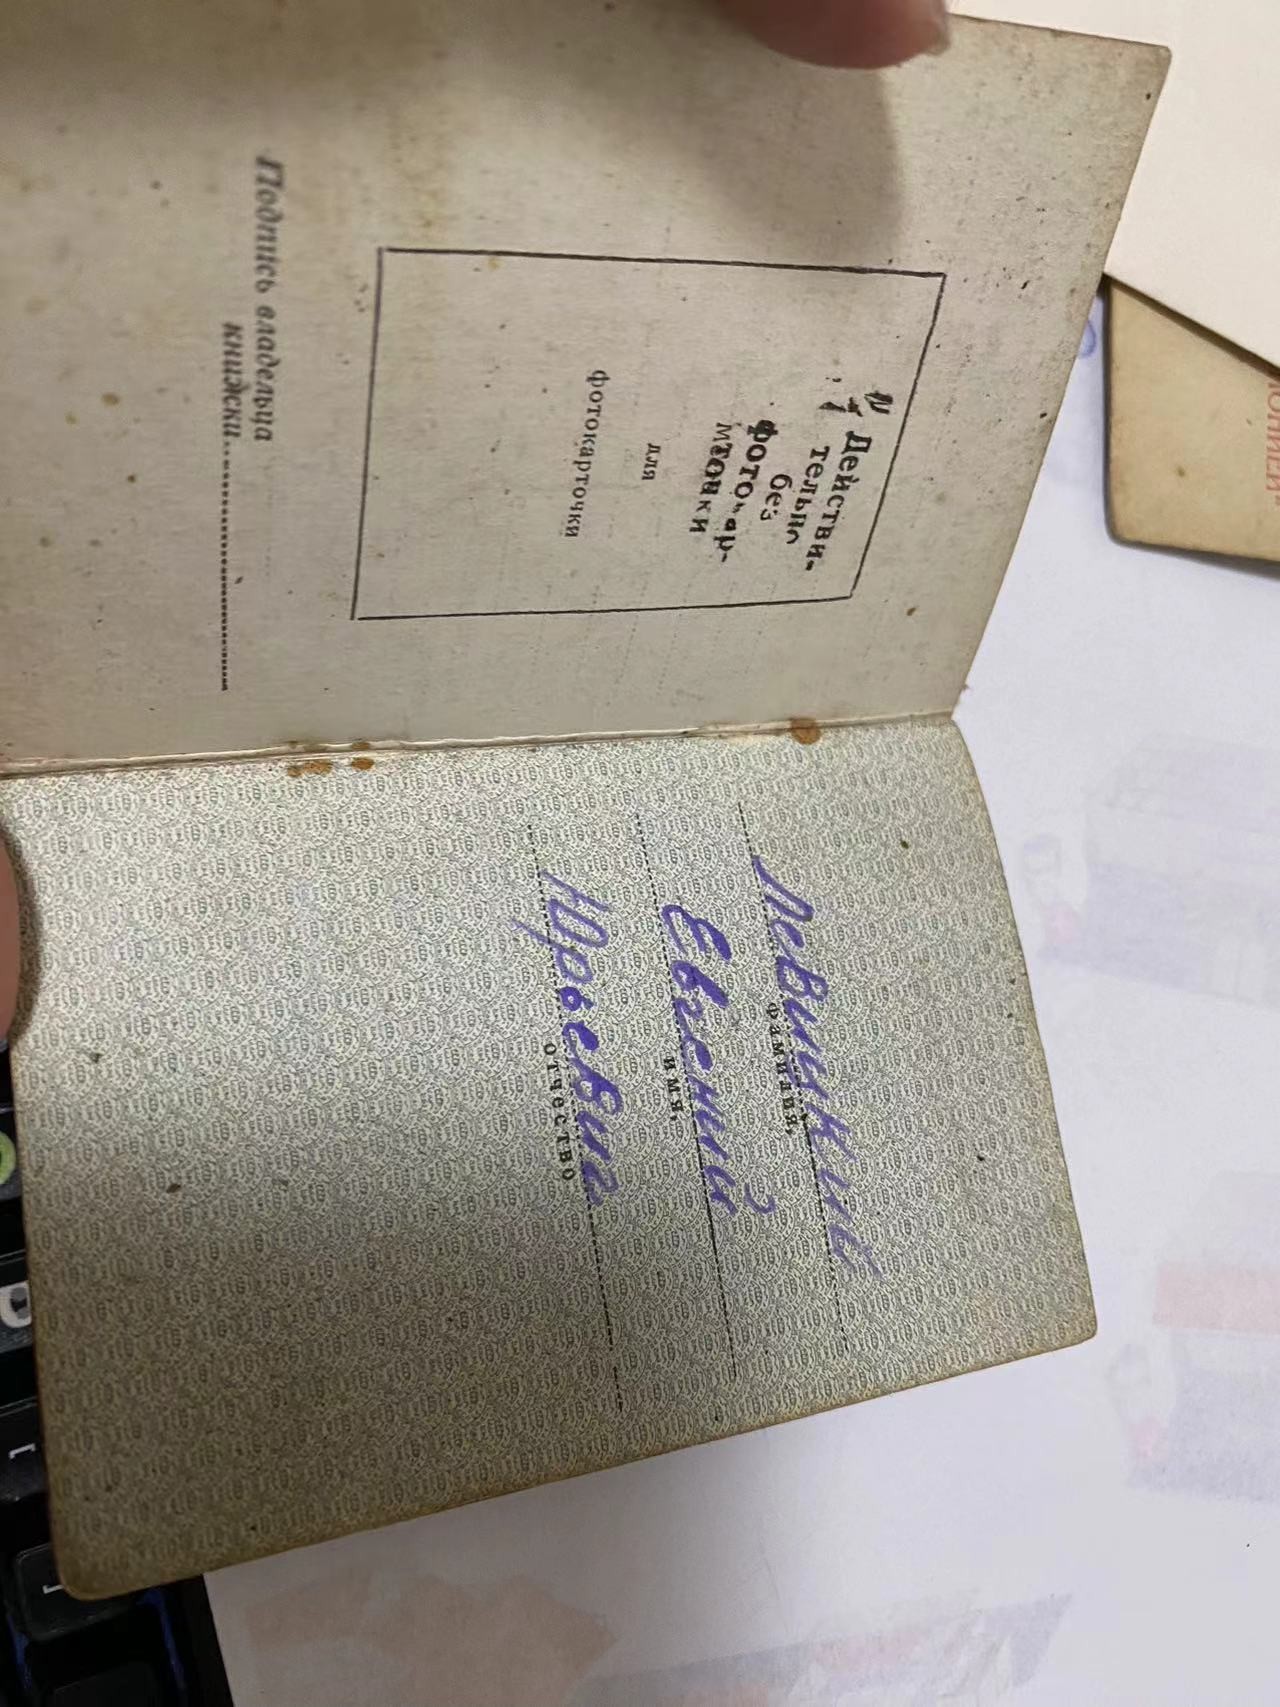 Действи-
тельно
без
фотокар-
точки
для
фотокарточки
Подпись владельца
книжки
Левицкий
фамилия,
Евгений
имя,
Юрьевич
отчество